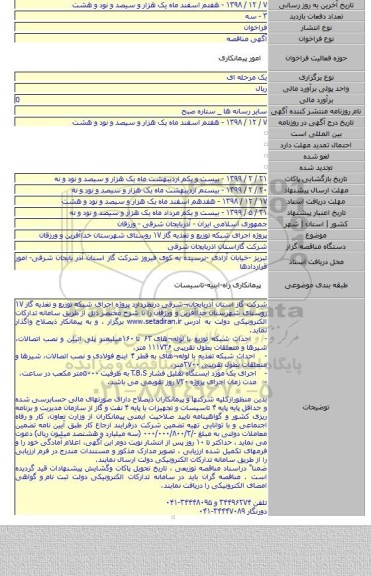 تاریخ آخرین به روز رسانی ۷ / ۱۲ / ۱۳۹۸ - هفتم اسفند ماه یک هزار و سیصد و نود و هشت
تعداد دفعات بازدید ۳ - سه
نوع انتشار فراخوان
نوع فراخوان آگهی مناقصه
حوزه فعالیت فراخوان امور پیمانکاری
نوع برگزاری یک مرحله ای
واحد پولی برآورد مالی ریال
برآورد مالی 0
نام روزنامه منتشر کننده آگهی سایر رسانه ها _ ستاره صبح
تاریخ درج آگهی در روزنامه ۷ / ۱۲ / ۱۳۹۸ - هفتم اسفند ماه یک هزار و سیصد و نود و هشت
بین المللی است
احتمال تمدید مهلت دارد
لغو شده
تجدید شده
تاریخ بازگشایی پاکات ۲۱ / ۲ / ۱۳۹۹ - بیست و یکم اردیبهشت ماه یک هزار و سیصد و نود و نه
مهلت ارسال پیشنهاد ۲۰ / ۲ / ۱۳۹۹ - بیستم اردیبهشت ماه یک هزار و سیصد و نود و نه
مهلت دریافت اسناد ۱۷ / ۱۲ / ۱۳۹۸ - هفدهم اسفند ماه یک هزار و سیصد و نود و هشت
تاریخ اعتبار پیشنهاد ۲۱ / ۵ / ۱۳۹۹ - بیست و یکم مرداد ماه یک هزار و سیصد و نود و نه
کشور | استان | شهر جمهوری اسلامی ایران - آذربایجان شرقی - ورزقان
موضوع پروژه اجرای شبکه توزیع و تغذیه گاز ۱۷ روستای شهرستان خداآفرین و ورزقان
دستگاه مناقصه گزار شرکت گازاستان آذربایجان شرقی
محل دریافت اسناد تبریز -خیابان آزادی -نرسیده به کوی فیروز شرکت گاز استان آذر بایجان شرقی- امور قراردادها
طبقه بندی موضوعی پیمانکاری راه-ابنیه-تاسیسات
توضیحات
شرکت گاز استان آذربایجان شرقی درنظردارد پروژه اجرای شبکه توزیع و تغذیه گاز ۱۷
روستای شهرستان خداآفرین و ورزقان را با شرح مختصر ذیل از طریق سامانه تدارکات
الکترونیکی دولت به آدرس www.setadiran.ir برگزار ، و به پیمانکار ذیصلاح واگذار
نماید.
احداث شبکه توزیع با لوله های ۶۳ تا ۱۶۰ میلیمتر پلی اتیلن و نصب اتصالات،
شیرها و متعلقات بطول تقریبی ۱۱۱۷۳۶ متر
احداث شبکه تغذیه با لوله های به قطر ۴ اینچ فولادی و نصب اتصالات، شیرها و
متعلقات بطول تقریبی ۲۷۰۰۰متر.
اجرای یک مورد ایستگاه تقلیل فشار T.B.S به ظرفیت ۵۰۰۰متر مکعب در ساعت.
مدت زمان اجرای پروژه ۷۲۰ روز تقویمی می باشد.
بدین منظورازکلیه شرکتها و پیمانکاران ذیصلاح دارای صورتهای مالی حسابرسی شده
و حداقل پایه پایه ۴ تاسیسات و تجهیزات یا پایه ۴ نفت و گاز از سازمان مدیریت و برنامه
ریزی کشور و گواهینامه تایید صلاحیت ایمنی پیمانکاران از وزارت تعاون، کار و رفاه
اجتماعی و با توانایی تهیه تضمین شرکت درفرایند ارجاع کار طبق آیین نامه تضمین
معاملات دولتی به مبلغ -/۳/۸۰۰/۰۰۰/۰۰۰ (سه میلیارد و هشتصد میلیون ریال) دعوت
می نماید ، حداکثر تا ۱۰ روز پس از انتشار نوبت دوم این آگهی، اعلام آمادگی خود را و
فرمهای تکمیل شده ارزیابی ، تصویر مدارک مذکور و مستندات مندرج در فرم ارزیابی
را از طریق سامانه تدارکات الکترونیکی دولت ارسال نمایند.
ضمنا" دراسناد مناقصه توزیعی ، تاریخ تحویل پاکات وگشایش پیشنهادات قید گردیده
است . مناقصه گران باید در سامانه تدارکات الکترونیکی دولت ثبت نام و گواهی
امضای الکترونیکی را دریافت نمایند.
تلفن ۳۴۴۹۶۲۷۴ و ۳۴۴۴۸۰۹۵-۰۴۱
دورنگار ۳۴۴۴۷۰۸۹-۰۴۱